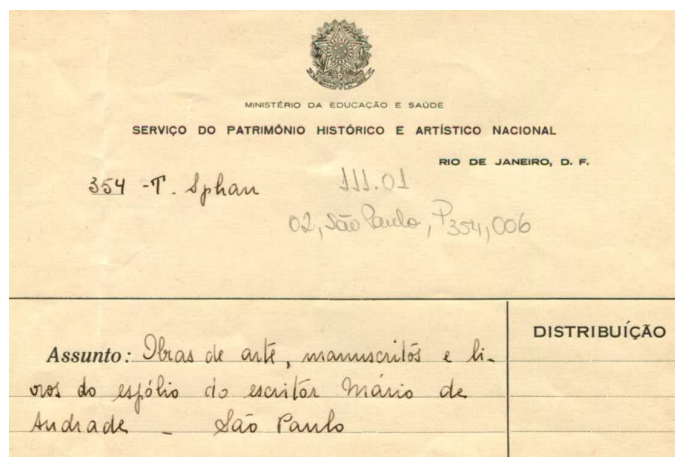 MINISTÉRIO DA EDUCAÇÃO E SAÚDE
SERVIÇO DO PATRIMÔNIO HISTÓRICO E ARTÍSTICO NACIONAL
RIO DE JANEIRO, D. F.
354 -T. Sphan
111.01
02, São Paulo, P354,006
DISTRIBUÍÇÃO
Assunto: Obras de arte, manuscritos e li-
vros do espólio do escritor Mário de
Andrade - São Paulo